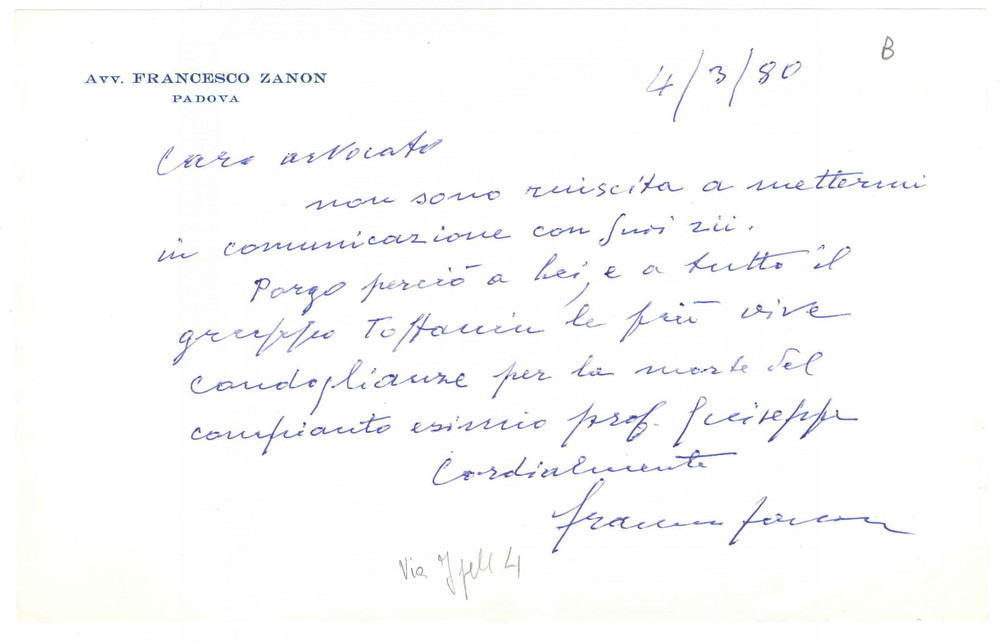 B
Avv. FRANCESCO ZANON
PADOVA
4/3/80
Caro avvocato
non sono riuscita a mettermi
in comunicazione con Suoi zii.
Porgo perciò a Lei, e a tutto il
gruppo Toffanin le più vive
condoglianze per la morte del
compianto esimio prof. Giuseppe
Cordialmente
Francesco Zanon
Via 4